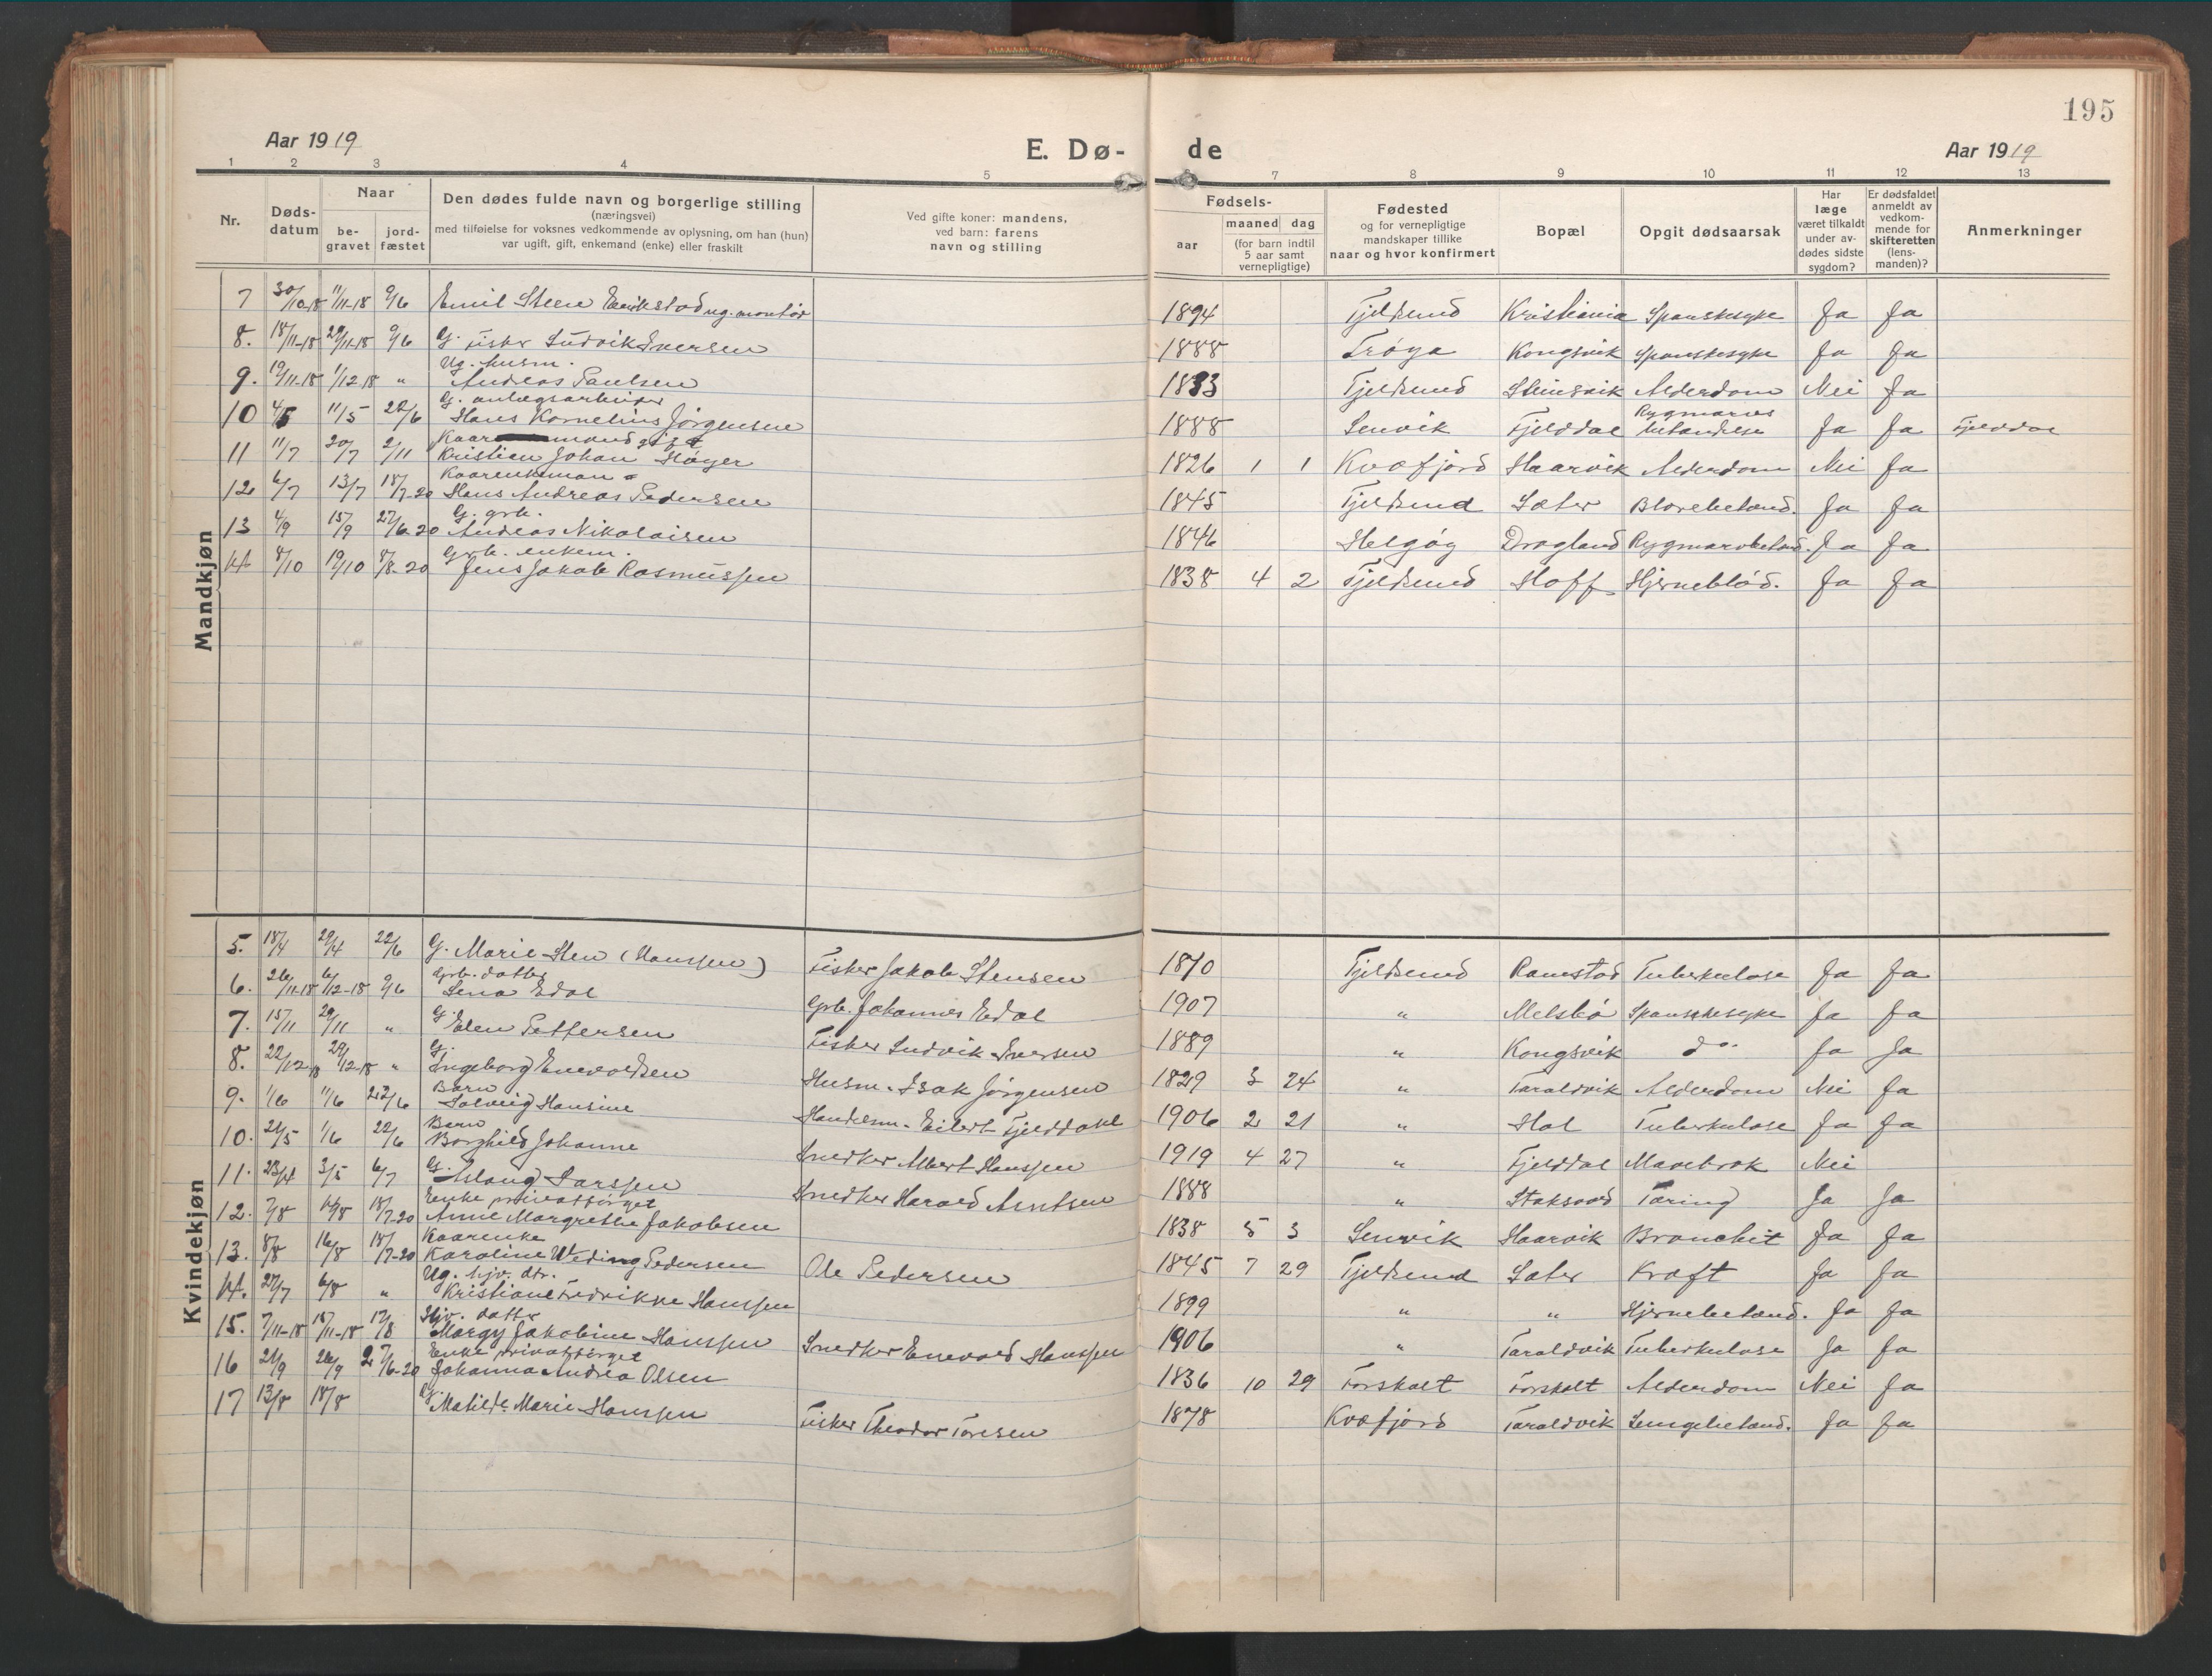 195
Aar 1919 E. Dø- de Aar 1919
1 2 3 4 5 7 8 9 10 11 12 13
Nr.
Døds-
datum
Naar
be-
gravet
jord-
fæstet
Den dødes fulde navn og borgerlige stilling
(næringsvei)
med tilføielse for voksnes vedkommende av oplysning, om han (hun)
var ugift, gift, enkemand (enke) eller fraskilt
Ved gifte koner: mandens,
ved barn: farens
navn og stilling
Fødsels-
aar
maaned dag
(for barn indtil
5 aar samt
vernepligtige)
Fødested
og for vernepligtige
mandskaper tillike
naar og hvor konfirmert
Bopæl
Opgit dødsaarsak
Har
læge
været tilkaldt
under av-
dødes sidste
sygdom?
Er dødsfaldet
anmeldt av
vedkom-
mende for
skifteretten
(lens-
manden)?
Anmerkninger
Mandkjøn
7 30/10-18 11/11-18 9/6 Emil Steen Enrikstad ug. montør 1894 Tjeldsund Kristiania Spanskesyke Ja Ja
8. 18/11-18 29/11-18 9/6 G. fisker Ludvik Iversen 1888 Trøya Kongsvik Spanskesyke Ja Ja
9. 19/11-18 1/12-18 " Ug. husm. Andreas Paulsen 1833 Tjeldsund Steinsvik Alderdom Nei Ja
10 4/5 11/5 22/6 G. anlægsarbeider Hans Kornelius Jørgensen 1888 Senvik Fjelddal Rygmarvs betændelse Ja Ja Fjelddal
11 11/7 20/7 2/11 Kaar mand gift Kristian Johan Høyer 1826 1 1 Kvæfjord Haarvik Alderdom Nei Ja
12 6/7 13/7 18/7-20 Kaarenkeman Hans Andreas Pedersen 1845 Tjeldsund Sæter Blærebetænd. Ja Ja
13 4/9 15/9 27/6-20 G. grb. Andreas Nikolaisen 1846 Helgøy Dragland Rygmarvbetænd. Ja Ja
14 8/10 19/10 8/8-20 Grb. enkem. Jens Jakob Rasmussen 1838 4 2 Tjeldsund Hoff Hjerneblød. Ja Ja
Kvindekjøn
5. 18/4 29/4 22/6 G. Marie Sten (Hanssen) Fisker Jakob Stensen 1870 Tjeldsund Ramstad Tuberkulose Ja Ja
6. 26/11-18 6/12-18 9/6 Grb. datter Lena Edal Grb. Johannes Edal 1907 " Melsbø Spanskesyke Ja Ja
7. 15/11 29/11 " G. Elen Pettersen Fisker Ludvik Iversen 1889 " Kongsvik do. Ja Ja
8. 22/12 18 29/12-18 " G. Ingeborg Enevoldsen Husm. Isak Jørgensen 1829 3 24 " Taraldvik Alderdom Nei Ja
9. 1/6 11/6 22/6 Barn Solveig Hansine Handelsm. Eilert Fjelddahl 1906 2 21 " Hol Tuberkulose Ja Ja
10. 21/5 1/6 22/6 Barn Borghild Johanne Snedker Albert Hanssen 1919 4 27 " Fjelddal Mavebrok Nei
11. 23/4 3/5 6/7 G. Aslaug Larssen Snedker Harald Arntsen 1888 " Staksvold Tæring Ja Ja
12. 7/8 16/8 18/7-20 Enke privatforsørget Anne Margrethe Jakobsen 1838 5 3 Senvik Haarvik Bronchit Ja Ja
13. 8/8 16/8 18/7-20 Kaarenke Karoline Weding Pedersen Ole Pedersen 1845 7 29 Tjeldsund Sæter Kræft Ja Ja
14. 27/7 6/8 " Ug. hjv. dtr. Kristiane Fredrikke Hanssen 1899 " " Hjernebetænd. Ja Ja
15. 7/11-18 18/11-18 17/8 Hjv. datter Margy Jakobine Hanssen Snedker Enevold Hanssen 1906 " Taraldvik Tuberkulose Ja Ja
16 21/9 26/9 27/6-20 Enke privatforsørget Johanna Andrea Olsen 1836 10 29 Forskalt Forskalt Alderdom Nei Ja
17 13/8 18/8 G. Matilde Marie Hanssen Fisker Theodor Toresen 1878 Kvæfjord Taraldvik Lungebetænd. Ja Ja